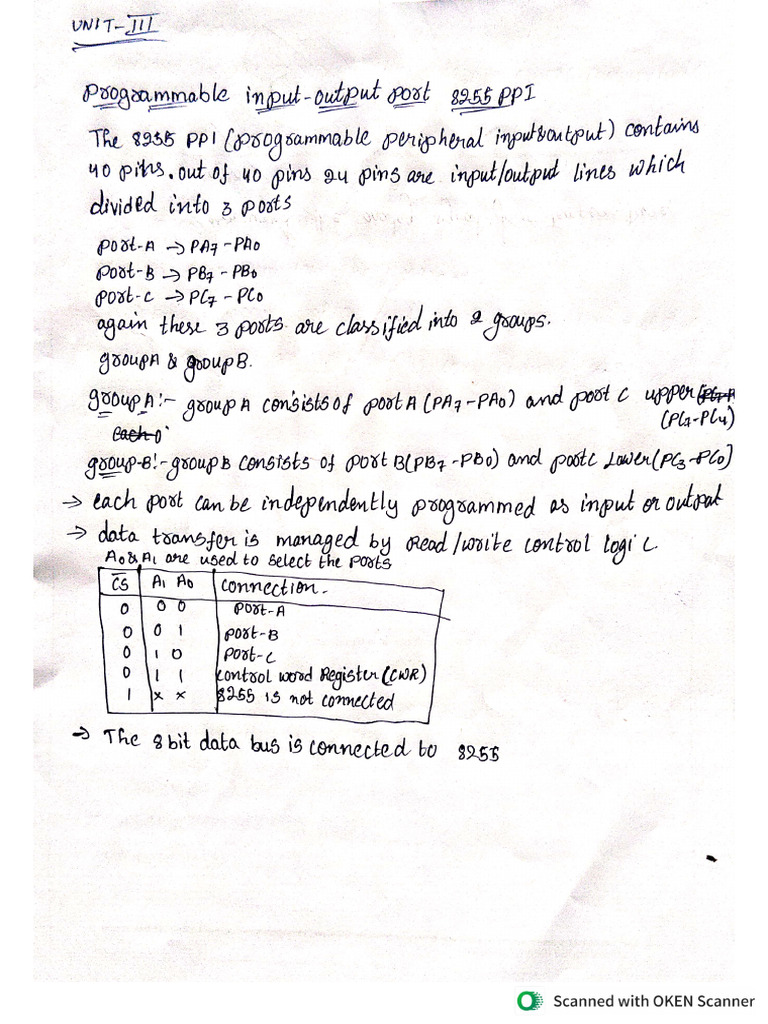 UNIT-III
Programmable input-output port 8255 PPI
The 8255 PPI (programmable peripheral input&output) contains
40 pins. out of 40 pins 24 pins are input/output lines which
divided into 3 ports
port-A → PA7 - PA0
port-B → PB7 - PB0
port-C → PC7 - PC0
again these 3 ports are classified into 2 groups.
group A & group B.
group A:- group A consists of port A (PA7-PA0) and port C upper
(PC7-PC4)
each
group-B:- group B consists of port B (PB7-PB0) and port C Lower (PC3-PC0)
→ each port can be independently programmed as input or output
→ data transfer is managed by Read/write control logic
A0 & A1 are used to select the ports
C̅S̅ A1 A0 connection.
0 0 0 port-A
0 0 1 port-B
0 1 0 port-C
0 1 1 control word Register (CWR)
1 x x 8255 is not connected
→ The 8 bit data bus is connected to 8255
Scanned with OKEN Scanner